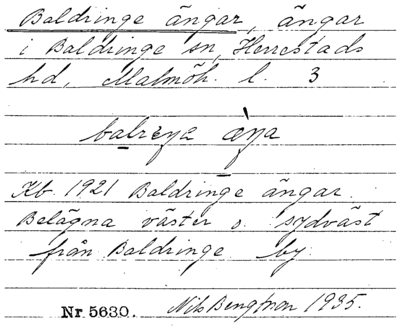 Baldringe ängar, ängar
i Baldringe sn, Herrestads
hd, Malmöh. l. 3
Kb 1921 Baldringe ängar.
Belägna väster o. sydväst
från Baldringe by.
Nr 5630. Nils Bengtson 1935.